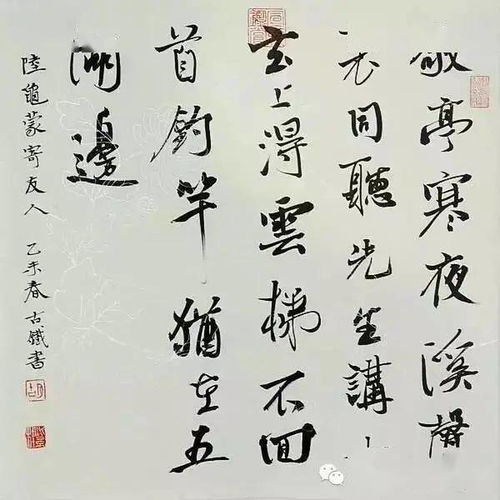 敬亭寒夜溪聲
裏同聽先生講
玄上得雲梯不回
首釣竿猶在五
湖邊
陸龜蒙寄友人 乙未春古鐵書